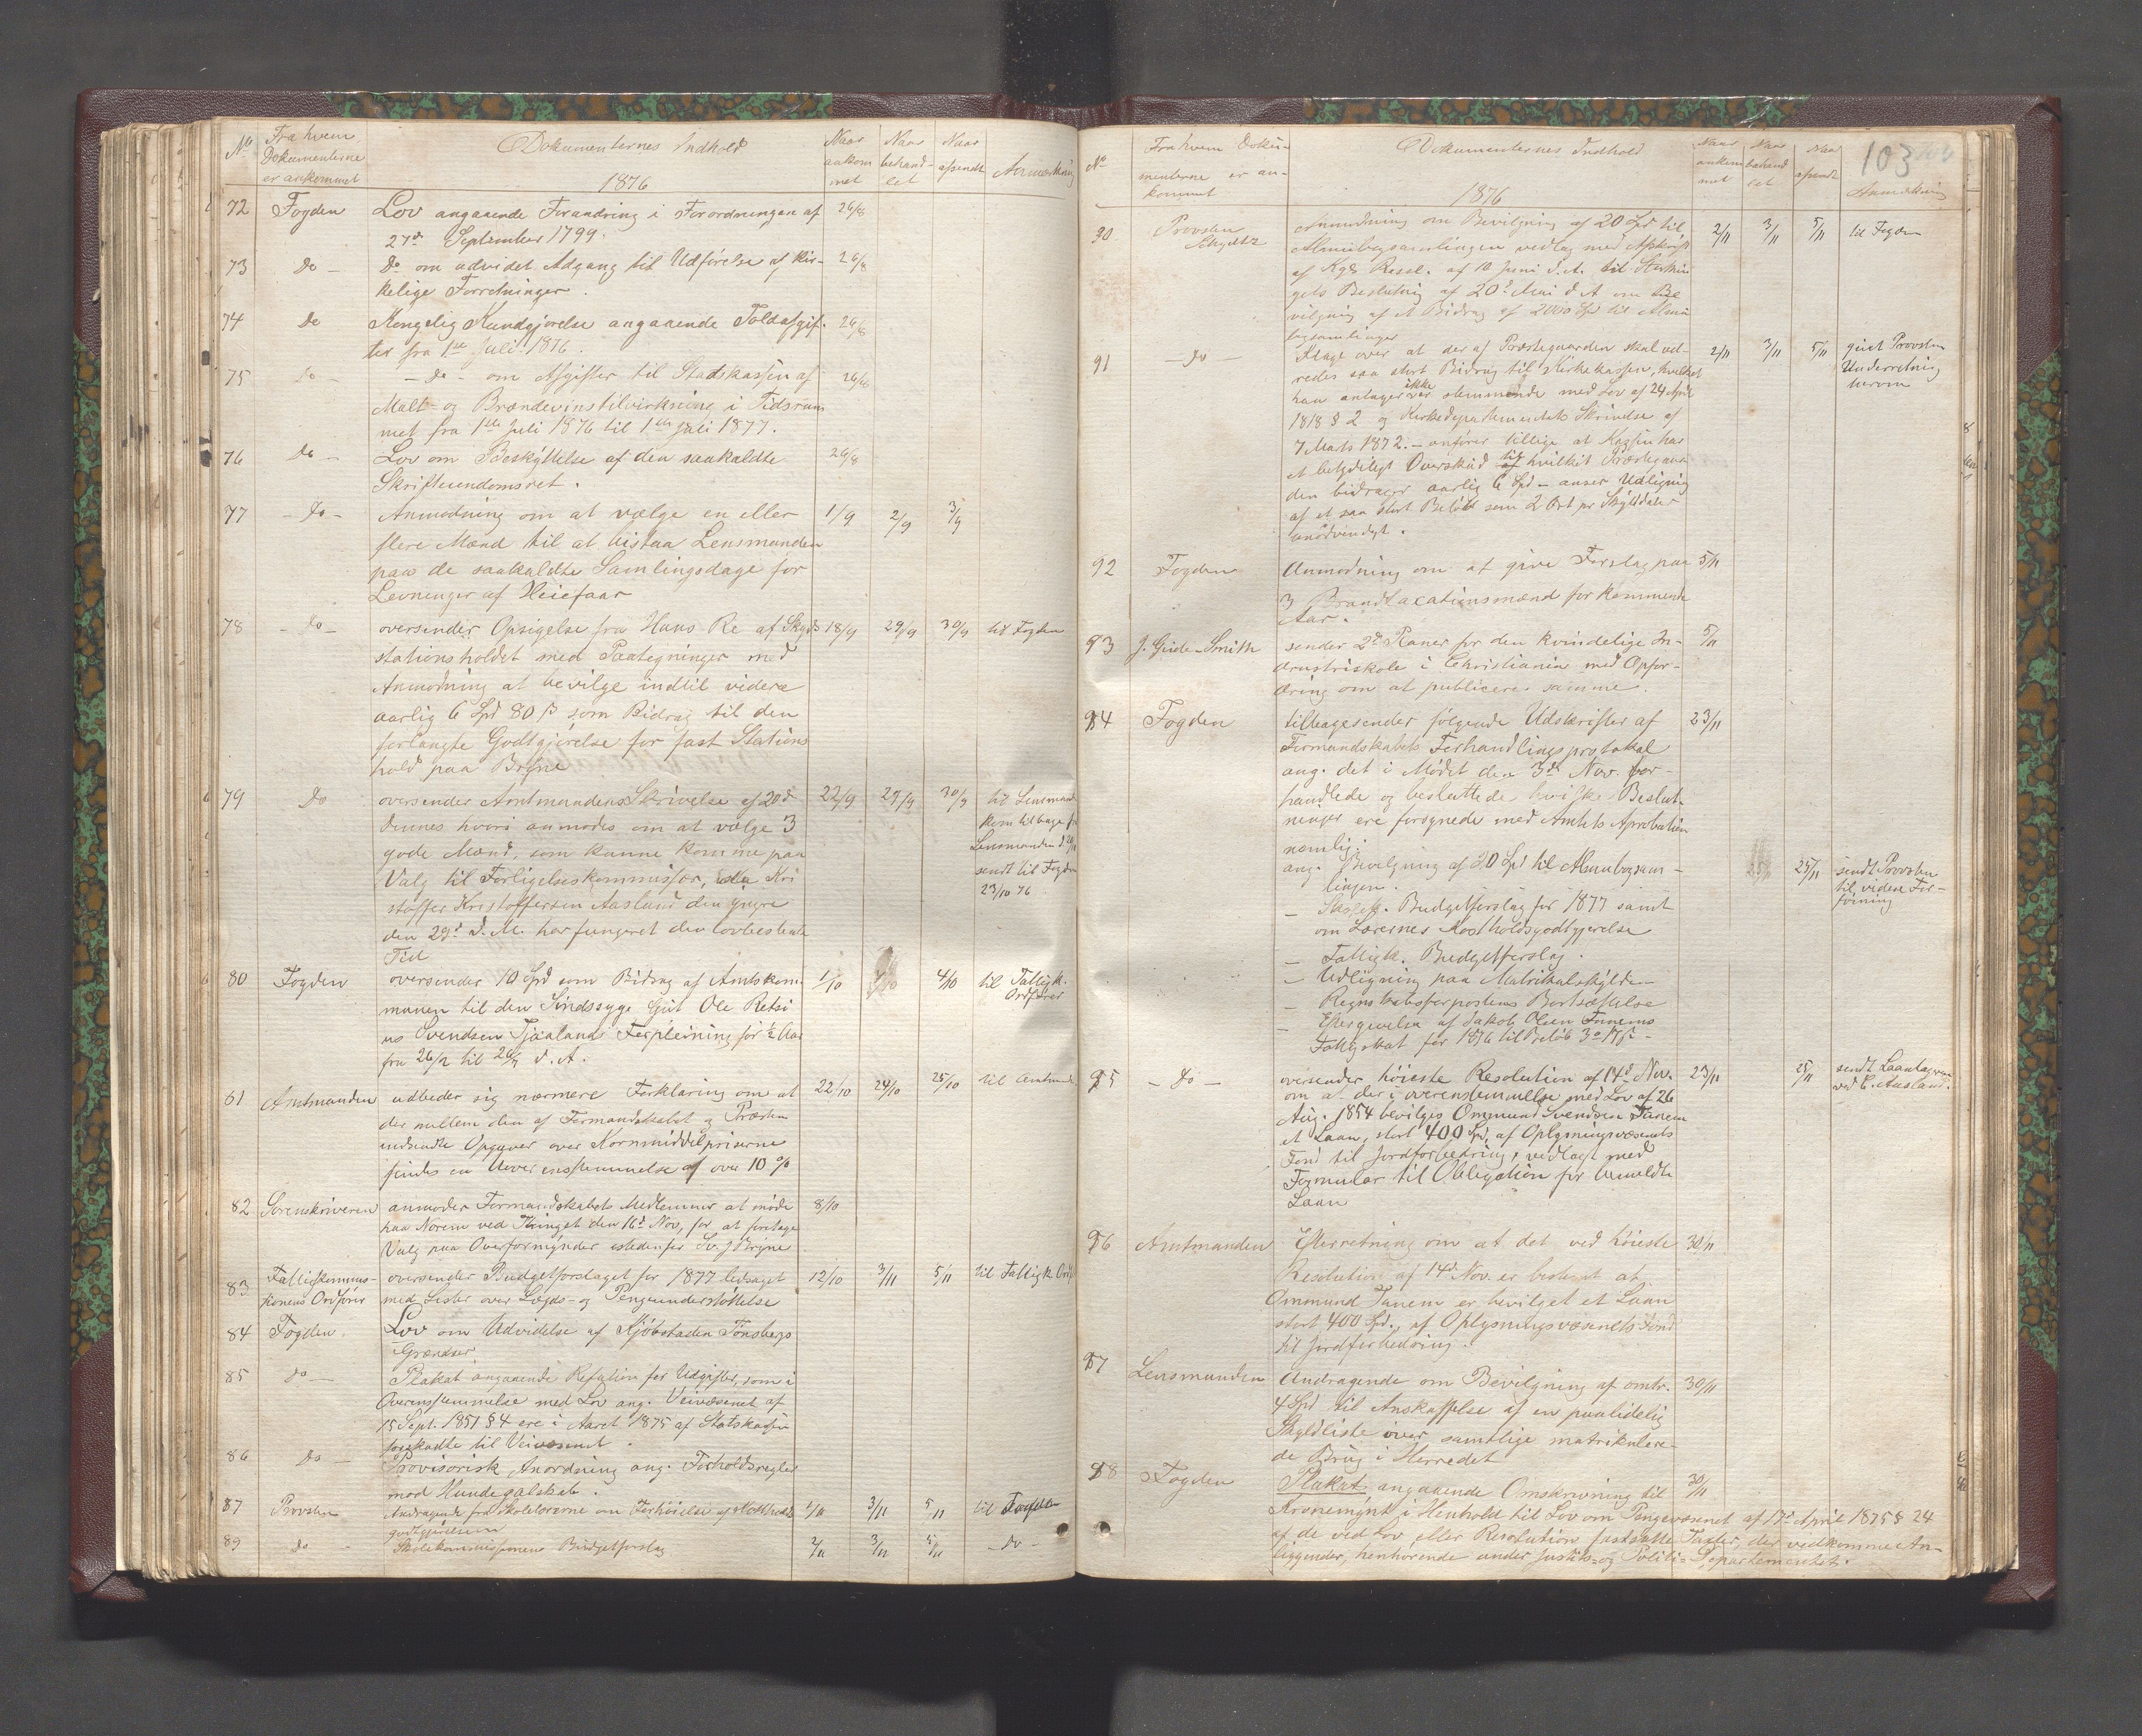 No
Fra hvem
Dokumenterne
er ankommet
Dokumenternes Indhold
1876
Naar
ankom
met
Naar
behand-
let
Naar
afsendt
Anmærkning
72 Fogden Lov angaaende Forandring i Forordningen af 26/8
27de September 1799.
73 Do — Do om udvidet Adgang til Udførelse af kir- 26/8
kelige Forretninger.
74 Do Kongelig Kundgjørelse angaaende Toldafgif- 26/8
ter fra 1ste Juli 1876.
75 Do — — do — om Afgifter til Statskassen af 26/8
Malt- og Brændevinstilvirkning i Tidsrum
met fra 1ste Juli 1876 til 1ste Juli 1877.
76 Do — Lov om Beskyttelse af den saakaldte 26/8
Skrifteiendomsret.
77 — Do — Anmodning om at vælge en eller 1/9 2/9 3/9
flere Mænd til at bistaa Lensmanden
paa de saakaldte Samlingsdage for
Levninger af Heiefaar
78 — Do — oversender Opsigelse fra Hans Re af Skyds 18/9 29/9 30/9 til Fogden
stationsholdet med Paategninger med
Anmodning at bevilge indtil videre
aarlig 6 Spd 80 ß som Bidrag til den
forlangte Godtgjørelse for fast Stations
hold paa Bryne
79 Do oversender Amtmandens Skrivelse af 20d 22/9 29/9 30/9 til Lensmand
dennes hvori anmodes om at vælge 3 kom tilbage fra
gode Mænd, som kunne komme paa Lensmanden d 20/10
Valg til Forligelseskommissær, da Kri sendt til Fogden
stoffer Kristoffersen Aasland den yngre 23/10 76
den 29d d. M. har fungeret den lovbestemte
Tid
80 Fogden oversender 10 Spd som Bidrag af Amtskom 1/10 4/10 til Fattigk.
munen til den Sindssyge Gut Ole Retsi Ordfører
us Svendsen Tjaalands Forpleining for ½ Aar
fra 26/2 til 26/7 d. A.
81 Amtmanden udbeder sig nærmere Forklaring om at 22/10 24/10 25/10 til Amtmanden
der mellem den af Formandskabet og Præsten
indsendte Opgaver over Kornmiddelpriserne
findes en Uoverensstemmelse af over 10 %
82 Sorenskriveren anmoder Formandskabets Medlemmer at møde 8/10
paa Norem ved Thinget den 16d Nov, for at foretage
Valg paa Overformynder istedenfor Sv. J Bryne
83 Fattigkommis- oversender Budgetforslaget for 1877 ledsaget 12/10 3/11 5/11 til Fattigk Ordf
sionens Ordfører med Lister over Lægds- og Pengeunderstøttelse
84 Fogden. Lov om Udvidelse af Kjøbstaden Tønsbergs
Grændser
85 Do — Plakat angaaende Refusion for Udgifter, som i
Overensstemmelse med Lov ang. Veivæsenet af
15 Sept. 1851 § 4 ere i Aaret 1875 af Statskassen
forskudte til Veivæsenet.
86 Do — Provisorisk Anordning ang. Forholdsregler
mod Hundegalskab.
87 Provsten Andragende fra Skolelærerne om Forhøielse af Kostholds 2/11 3/11 5/11 til Fogden
godtgjørelsen
89 Do — Skolekommissionens Budgetforslag 2/11 3/11 5/11 — Do —
103
No
Fra hvem Doku-
menterne er an-
kommet
Dokumenternes Indhold
1876
Naar
ankom
met
Naar
behand
let
Naar
afsendt
Anmærkning
90 Provsten Anmodning om Bevilgning af 20 Spd til 2/11 3/11 5/11 til Fogden
Schjøtz Almuebogsamlingen vedlag med Afskrift
af Kgl. Resol. af 10 Juni d. A. til Storthin
gets Beslutning af 20d Mai d. A om Be
vilgning af et Bidrag af 2000 Spd til Almue
bogsamlinger
91 — Do Klage over at der af Præstegaarden skal ud- 2/11 3/11 5/11 givet Provsten
redes saa stort Bidrag til Kirkekassen, hvilket Underretning
han antager ikke være stemmende med Lov af 24 April herom
1818 § 2 og Kirkedepartementets Skrivelse af
7 Marts 1872. — anfører tillige at Kassen har
et betydeligt Overskud til hvilket Præstegaar
den bidrager aarlig 6 Spd — anser Udligning
af et saa stort Beløb som 2 Ort pr Skylddaler
unødvendigt.
92 Fogden Anmodning om at give Forslag paa 5/11
3 Brandtaxationsmænd for kommende
Aar.
93 J. Gude-Smith sender 2de Planer for den kvindelige In- 5/11
dustriskole i Christiania med Opfor-
dring om at publicere samme.
94 Fogden tilbagesender følgende Udskrifter af 23/11
Formandskabets Forhandlingsprotokol
ang. det i Mødet den 3de Nov. for-
handlede og besluttede. Beslut-
ninger ere forsynede med Amtets Aprobation
nemlig:
ang. Bevilgning af 20 Spd til Almuebogsam- 25/11 sendt Provsten
lingen. til videre For-
føining
— Skolek. Budgetforslag for 1877 samt
om Lærernes Kostholdsgodtgjørelse
— Fattigk. Budgetforslag.
— Udligning paa Matrikulskylden
— Regnskabsførerpostens Bortsættelse
— Eftergivelse af Jakob Olsen Tunems
Fattigskat for 1876 til Beløb
95 — Do — oversender høieste Resolution af 14d Nov. 23/11 25/11 sendt Laantageren
om at der i overensstemmelse med Lov af 26 ved C. Aasland.
Aug. 1854 bevilges Ommund Svendsen Tunem
et Laan, stort 400 Spd, af Oplysningsvæsenets
Fond til Jordforbedring, vedlagt med
Formular til Obligation for bemeldte
Laan
96 Amtmanden Efterretning om at det ved høieste 30/11
Resolution af 14d Nov. er bestemt at
Ommund Tunem er bevilget et Laan
stort 400 Spd. af Oplysningsvæsenets Fond
til Jordforbedring.
97 Lensmanden Andragende om Bevilgning af omtr. 30/11
4 Spd til Anskaffelse af en paalidelig
Skyldliste over samtlige matrikulere-
de Brug i Herredet
98 Fogden Plakat angaaende Omskrivning til 30/11
Kronemynt i Henhold til Lov om Pengevæsenet af 17de April 1875 § 24
af de ved Lov eller Resolution fastsatte Taxter, der vedkomme An-
liggender, henhørende under Justits- og Politi-Departementet.